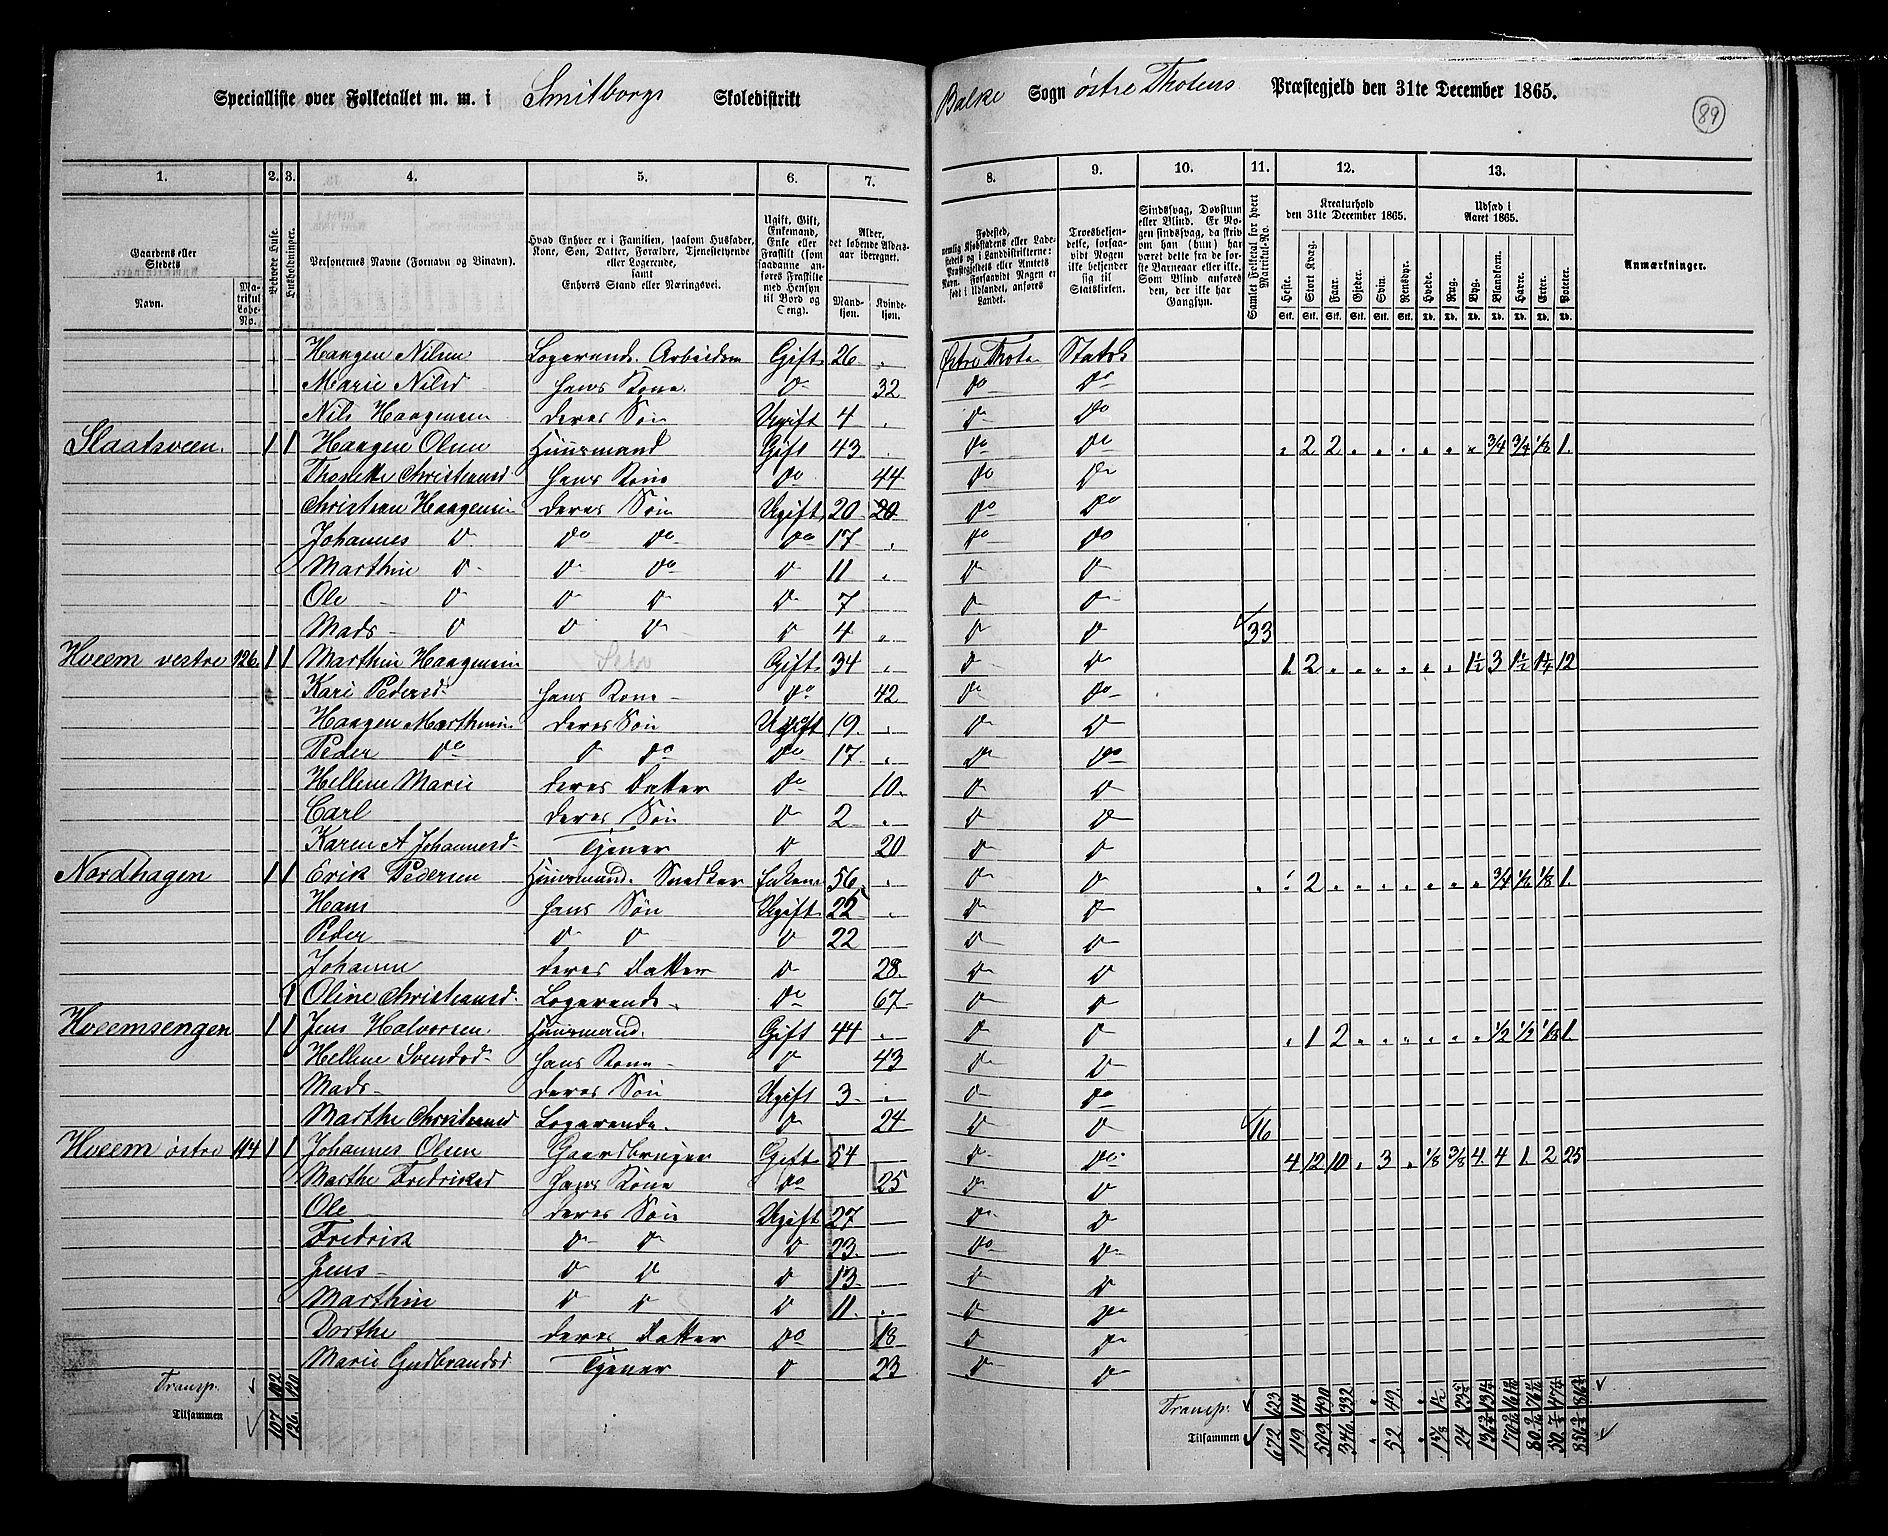 Specialliste over Folketallet m. m. i Smitborgs Skoledistrikt Balke Sogn østre Thotens Præstegjeld den 31te December 1865.
89
1. 2. 3. 4. 5. 6. 7. 8. 9. 10. 11. 12. 13.
Gaardens eller Stedets Navn. Matrikul Løbe-No. Beboede Huse. Husholdninger. Personernes Navne (Fornavn og Binavn). Hvad Enhver er i Familien, saasom Husfader, Kone, Søn, Datter, Forældre, Tjenestetyende eller Logerende, samt Enhvers Stand eller Næringsvei. Ugift, Gift, Enkemand, Enke eller Fraskilt (som saadanne anføres Fraskilte med Hensyn til Bord og Seng). Alder, det løbende Alders-aar iberegnet. Mand-kjøn. Kvinde-kjøn. Fødested, nemlig Kjøbstadens eller Lade-stedets og i Landdistrikterne: Præstegjeldets eller Amtets Navn. Forsaavidt Nogen er født i Udlandet, anføres Landet. Troesbekjen-delse, forsaa-vidt Nogen ikke bekjender sig til Statskirken. Sindssvag, Døvstum eller Blind. Er No-gen sindssvag, da skriv om han (hun) har været dette fra de første Barneaar eller ikke. Som Blind anføres den, der ikke har Gangsyn. Samlet Folketal for hvert Matrikul-No. Kreaturhold den 31te December 1865. Heste. Stort Kvæg. Faar. Gjeder. Svin. Rensdyr. Udsæd i Aaret 1865. Hvede. Rug. Byg. Blandkorn. Havre. Erter. Poteter. Anmærkninger.
Haagen Nilsen Logerende. Arbeidsm Gift 26 Østre Thote Statsk
Marie Nilsd hans Kone do 32 do do
Nils Haagensen deres Søn Ugift 4 do do
Slaatsveen. 1 1 Haagen Olsen Huusmand Gift 43 do do 2 2 3/4 3/4 1/8 1.
Thorette Christiansd hans Kone do 44 do do
Christian Haagensen deres Søn Ugift 20 20 do do
Johannes do do do do 17 do do
Marthin do do do do 11 do do
Ole do do do do 7 do do
Mads do do do do 4 do do 33
Hveem vestre 126 1 1 Marthin Haagensen Selv Gift 34 do do 1 2 1½ 3 1½ 1¼ 12
Kari Pedersd hans Kone do 42 do do
Haagen Marthinsen deres Søn Ugift 19 do do
Peder do do do do 17 do do
Hellene Marie deres Datter do 10 do do
Carl deres Søn do 2 do do
Karen A Johannesd Tjener do 20 do do
Nordhagen 1 1 Erik Pedersen Huusmand. Snedker Enkem 56 do do 2 3/4 1/2 1/8 1.
Hans hans Søn Ugift 25 do do
Peder do do do 22 do do
Johanne deres Datter do 28 do do
1 Oline Christiansd Logerende do 67 do do
Hveemsengen 1 1 Jens Halvorsen Huusmand. Gift 44 do do 1 2 1/2 1/2 1/8 1.
Hellene Svendsd hans Kone do 43 do do
Mads deres Søn Ugift 3 do do
Marthe Christiansd Logerende. do 24 do do 16
Hveem østre 144 1 1 Johannes Olsen Gaardbruger Gift 54 do do 4 12 10 3 1/8 3/8 4 4 1 2 25
Marthe Fredriksd hans Kone do 25 do do
Ole deres Søn Ugift 27 do do
Fredrik do do do 23 do do
Jens do do do 13 do do
Marthin do do do 11 do do
Dorthe deres Datter do 18 do do
Marie Gudbrandsd Tjener do 23 do do
Transp. 102 120 Transp. 623 114 490 332 49
Tilsammen 107 126 Tilsammen 672 119 509 346 52